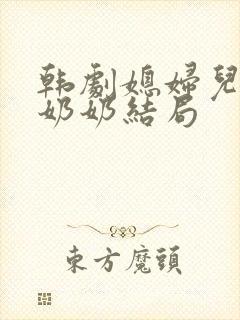 韩劇媳婦兒
奶奶結局
東方魔頭